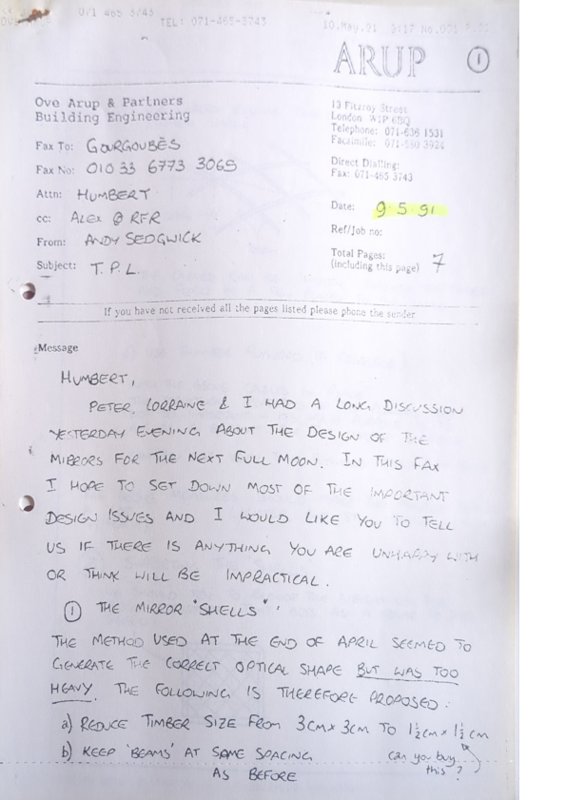 071 465 3743
TEL: 071-465-3743
10.May.21 9:17 No.021
ARUP
1
Ove Arup & Partners
Building Engineering
13 Fitzroy Street
London W1P 6BQ
Telephone: 071-636 1531
Facsimile: 071-580 3924
Direct Dialling:
Fax: 071-465 3743
Fax To: GOURGOUBÈS
Fax No: 010 33 6773 3065
Attn: HUMBERT
cc: ALEX @ RFR
From: ANDY SEDGWICK
Subject: T.P.L.
Date: 9.5.91
Ref/Job no:
Total Pages:
(including this page) 7
If you have not received all the pages listed please phone the sender
Message
HUMBERT,
PETER, LORRAINE & I HAD A LONG DISCUSSION
YESTERDAY EVENING ABOUT THE DESIGN OF THE
MIRRORS FOR THE NEXT FULL MOON. IN THIS FAX
I HOPE TO SET DOWN MOST OF THE IMPORTANT
DESIGN ISSUES AND I WOULD LIKE YOU TO TELL
US IF THERE IS ANYTHING YOU ARE UNHAPPY WITH
OR THINK WILL BE IMPRACTICAL.
① THE MIRROR "SHELLS"
THE METHOD USED AT THE END OF APRIL SEEMED TO
GENERATE THE CORRECT OPTICAL SHAPE BUT WAS TOO
HEAVY. THE FOLLOWING IS THEREFORE PROPOSED:
a) REDUCE TIMBER SIZE FROM 3cm x 3cm TO 1½cm x 1½cm
b) KEEP 'BEAMS' AT SAME SPACING
AS BEFORE
can you buy
this?